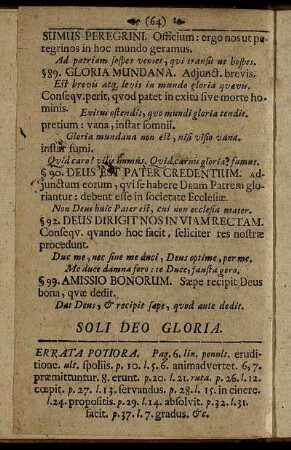 (64)
SUMUS PEREGRINI. Officium: ergo nos ut pe-
regrinos in hoc mundo geramus.
Ad patriam sospes veniet, qvi transit ut hospes.
§ 89. GLORIA MUNDANA. Adjunct. brevis.
Est brevis atq; levis in mundo gloria qvævis.
Conseqv. perit, qvod patet in exitu sive morte ho-
minis.
Exitus ostendit, qvo mundi gloria tendit.
pretium: vana, instar somnii.
Gloria mundana non est, nisi visio vana.
instar fumi.
Qvid caro? vilis humus. Qvid carnis gloria? fumus.
§ 90. DEUS EST PATER CREDENTIUM. Ad-
junctum eorum, qvi se habere Deum Patrem glo-
riantur: debent esse in societate Ecclesiæ.
Non Deus huic Pater est, cui non ecclesia mater.
§ 92. DEUS DIRIGIT NOS IN VIAM RECTAM.
Conseqv. qvando hoc facit, feliciter res nostræ
procedunt.
Duc me, nec sine me duci, Deus optime, per me.
Me duce damna fero: te Duce, fausta gero.
§ 99. AMISSIO BONORUM. Sæpe recipit Deus
bona, qvæ dedit.
Dat Deus, & recipit sæpe, qvod ante dedit.
SOLI DEO GLORIA.
ERRATA POTIORA. Pag. 6. lin. penult. erudi-
tione. ult. spoliis. p. 10. l. 5. 6. animadvertet. 6, 7.
præmittuntur. 8. erunt. p. 20. l. 21. ruta. p. 26. l. 12.
cœpit. p. 27. l. 13. servandus. p. 28. l. 15. in cinere.
l. 24. propositis. p. 29. l. 14. absolvit. p. 32. l. 31.
facit. p. 37. l. 7. gradus. &c.